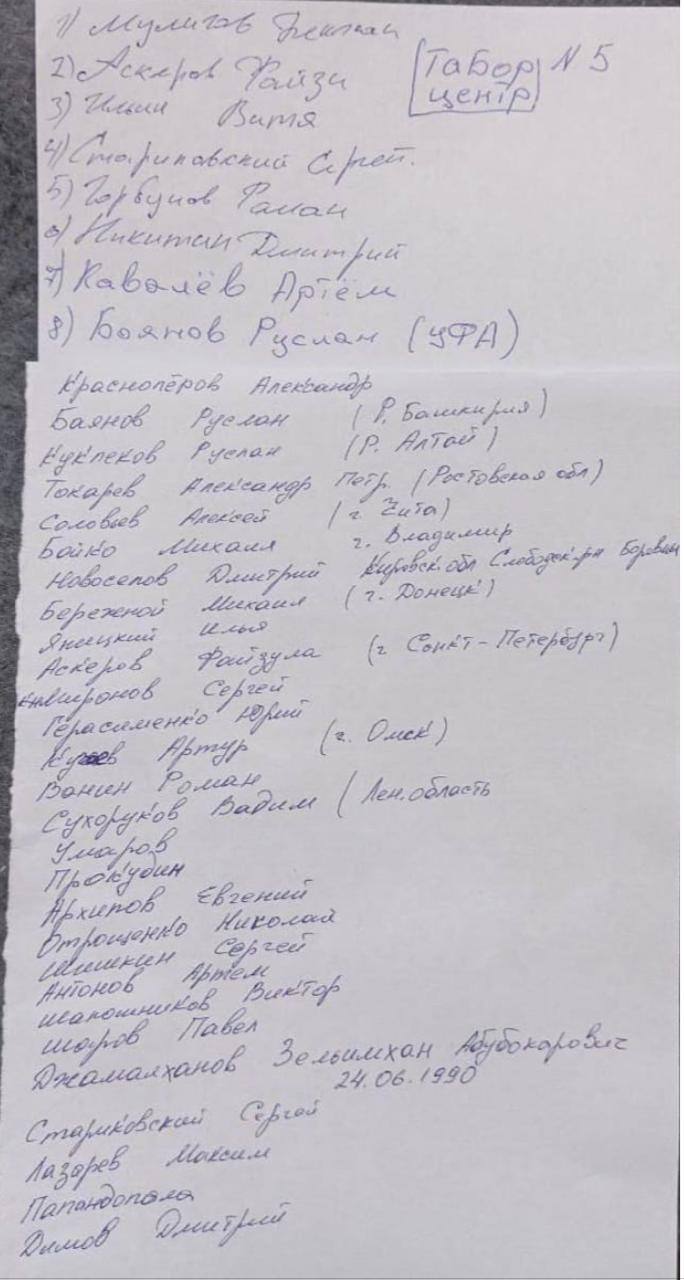 1) Мулигов
2) Аскеров Файзи
[Табор центр] N 5
3) Ильин Витя
4) Стариковский Сергей.
5) Горбунов Раман
6) Никитин Дмитрий
7) Кавалёв Артём
8) Боянов Руслан (УФА)
Краснопёров Александр
Баянов Руслан (Р. Башкирия)
Кукпеков Руслан (Р. Алтай)
Токарев Александр Петр. (Ростовская обл)
Соловьев Алексей (г. Чита)
Бойко Михаил г. Владимир
Новоселов Дмитрий Кировск. обл Слободск. рн Боровин
Бережной Михаил (г. Донецк)
Яницкий Илья
Аскеров Файзула (г Санкт-Петербург)
Миронов Сергей
Герасименко Юрий
Артур (г. Омск)
Ванин Роман
Сухоруков Вадим (Лен. область
Умаров
Прокудин
Архипов Евгений
Отрощенко Николай
Шишкин Сергей
Антонов Артем
Шапошников Виктор
Шаров Павел
Джамалханов Зелимхан Абубокарович
24.06.1990
Стариковский Сергей
Лазарев Максим
Папандопала
Димов Дмитрий